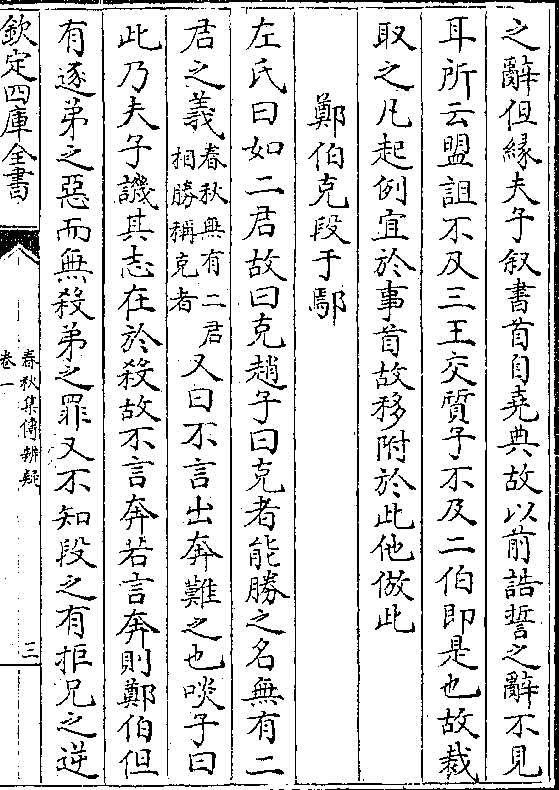 之辭但緣夫子叙書首自堯典故以前誥誓之辭不見
耳所云盟詛不及三王交質子不及二伯即是也故裁
取之凡起例宜於事首故移附於此他倣此
鄭伯克段于鄢
左氏曰如二君故曰克趙子曰克者能勝之名無有二
君之義春秋無有二君相勝稱克者又曰不言出奔難之也啖子曰
此乃夫子譏其志在於殺故不言奔若言奔則鄭伯但
有逐弟之惡而無殺弟之罪又不知段之有拒兄之逆
欽定四庫全書
春秋集傳辨疑
卷一
三